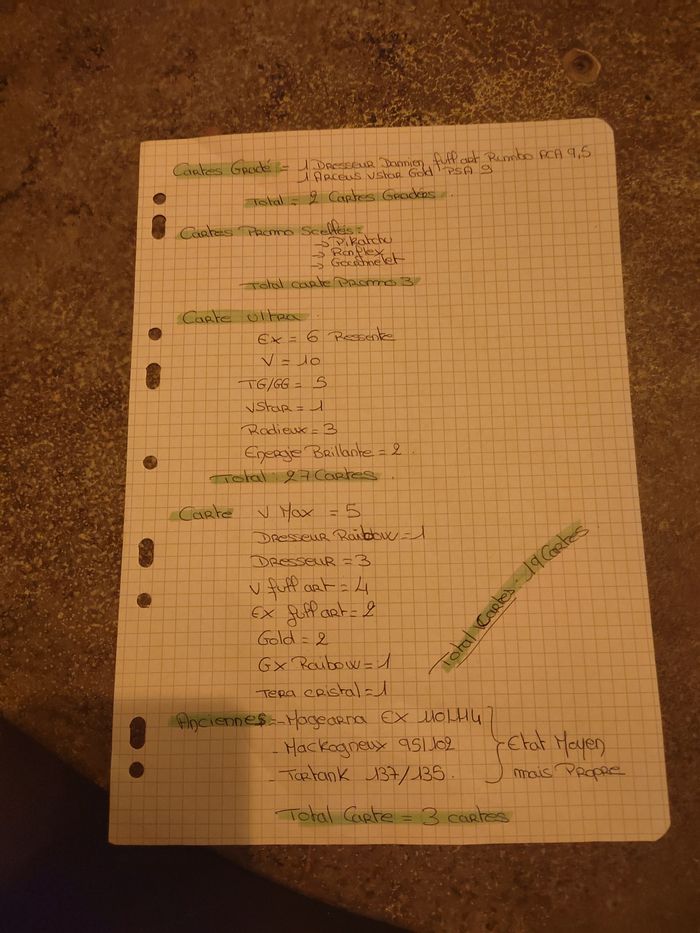 Cartes Gradé = 1 Dresseur Dannien full art Rumbo PCA 9,5
1 Arceus VStar Gold PSA 9
Total = 2 Cartes Gradées
Cartes Promo Scellés =
→ Pikatchu
→ Ronflex
→
Total carte Promo 3
Carte Ultra
Ex = 6 Ressente
V = 10
TG/GG = 5
VStar = 1
Radieux = 3
Energie Brillante = 2
Total : 27 Cartes
Carte V Max = 5
Dresseur Raibow = 1
Dresseur = 3
V full art = 4
EX full art = 2
Gold = 2
GX Raibow = 1
Tera cristal = 1
Total Cartes : 19 Cartes
Anciennes = - Magearna EX 110/114
- Mackogneux 95/102
- Tartank 137/135
Etat Moyen
mais Propre
Total Carte = 3 cartes